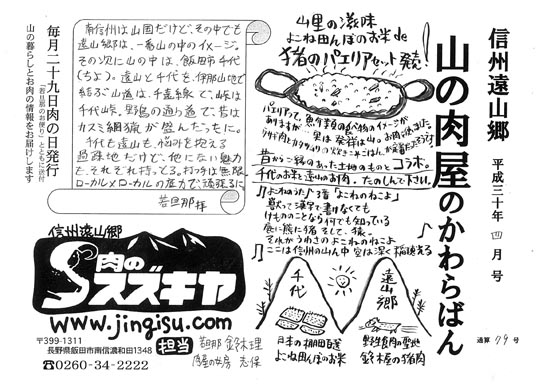 信州遠山郷
平成三十年 四月号
山の肉屋のかわらばん
通算79号
山里の滋味
よこね田んぼのお米de
猪のパエリアセット発売!
パエリアって、魚介類の食べ物のイメージが
ありますが、実は発祥は山のお肉が
コラボ。
千代のお米と遠山のお肉。たのしんで下さい。
よこねのうた♪3番「よこねのねこよ」
獣って漢字で書けなくても
けもののことなら何でも知っている
鹿に熊に猪 そして、猿…
それがうわさのよこねのねこよ
ここは信州の山ん中 空は深く 稲穂光る
千代
遠山郷
日本の棚田百選
よこね田んぼのお米
野生食肉の聖地
鈴木屋の猪肉
南信州は山国だけど、その中でも
遠山郷は、一番山の中のイメージ。
その次に山の中は、飯田市千代
(ちよ)。遠山と千代を、伊那山地で
結ぶ山道は、千遠線で、峠は
千代峠。野鳥の通り道で、昔は
カスミ網猟が盛んだったに。
千代も遠山も、悩みを抱える
過疎地だけど、他にない魅力
を、それぞれ持っとる。打つ手は無限
ローカル×ローカルの底力で頑張るに
若旦那 拝
毎月二十九日肉の日発行
「芳日那のお便り」とともに送付
山の暮らしとお肉の情報をお届けします
信州遠山郷
肉のスズキヤ
www.jingisu.com
〒399-1311
長野県飯田市南信濃和田1348
☎0260-34-2222
担当
若旦那 鈴木理
肉屋の女房 志保